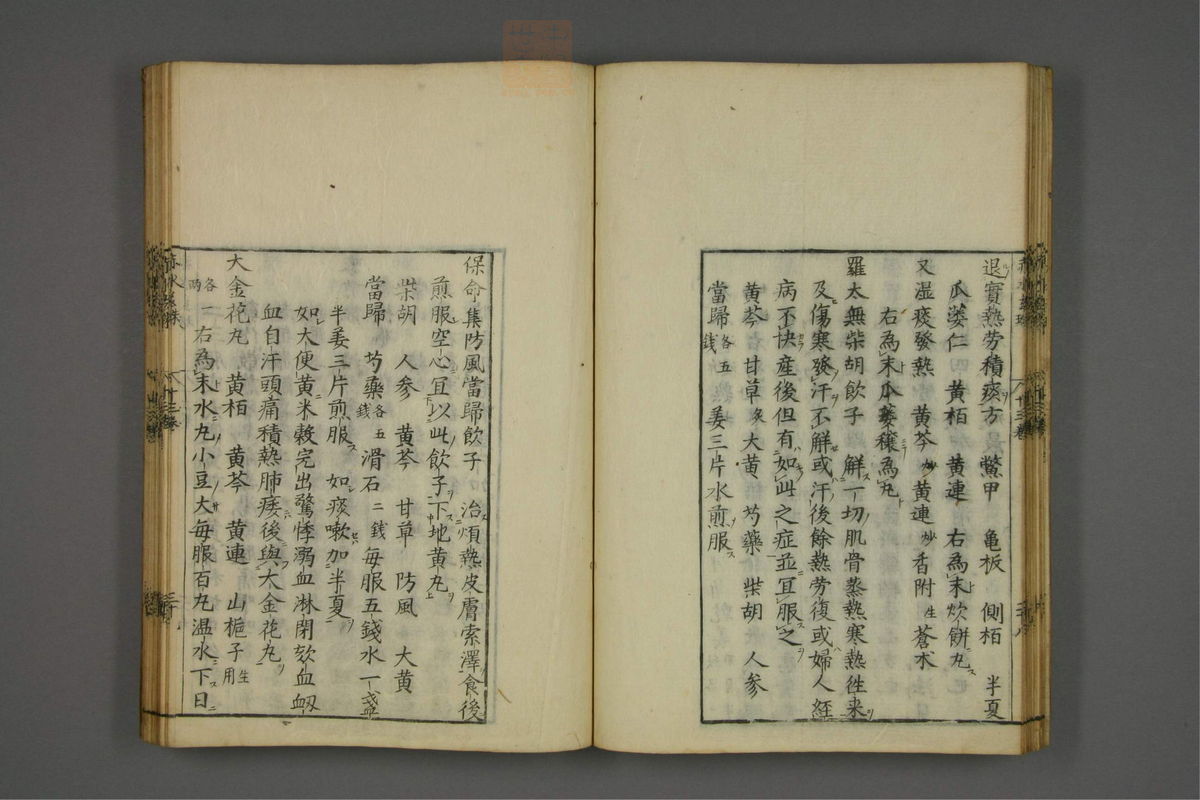 退實熱勞積痰方 鱉甲 亀板 側栢 半夏
瓜蔞仁 黄栢 黄連 右為末炊餅丸
又湿痰發熱 黄芩炒黄連炒香附生蒼朮
右為末瓜蔞穰為丸
羅太無柴胡飲子 解一切肌骨蒸熱寒熱徃来
及傷寒發汗不解或汗後餘熱勞復或婦人経
病不快産後但有如此之症並宜服之
黄芩 甘草炙大黄 芍藥 柴胡 人參
當歸各五錢 姜三片水煎服
保命集防風當歸飲子 治煩熱皮膚索澤食後
煎服空心宜以此飲子下地黄丸
柴胡 人參 黄芩 甘草 防風 大黄
當歸 芍藥各五錢滑石二錢每服五錢水一盞
半姜三片煎服 如痰嗽加半夏
如大便黄米穀完出驚悸溺血淋閉欬血衂
血自汗頭痛積熱肺痿後與大金花丸
大金花丸 黄栢 黄芩 黄連 山梔子生用
各一兩右為末水丸小豆大每服百丸温水下日